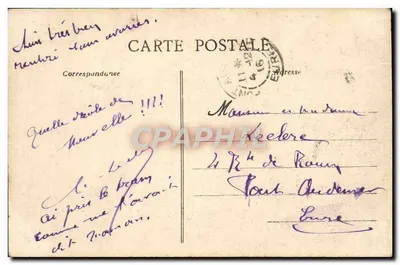 Suis très bien
rentré sans avaries.
CARTE POSTALE
Correspondance
Adresse
Quelle drôle de
Nouvelle !!!!
ai pris le train
comme me l'avait
dit maman.
Monsieur et madame
Leclerc
4 Rte de Rouen
Pont Audemer
Eure
CPARAMA